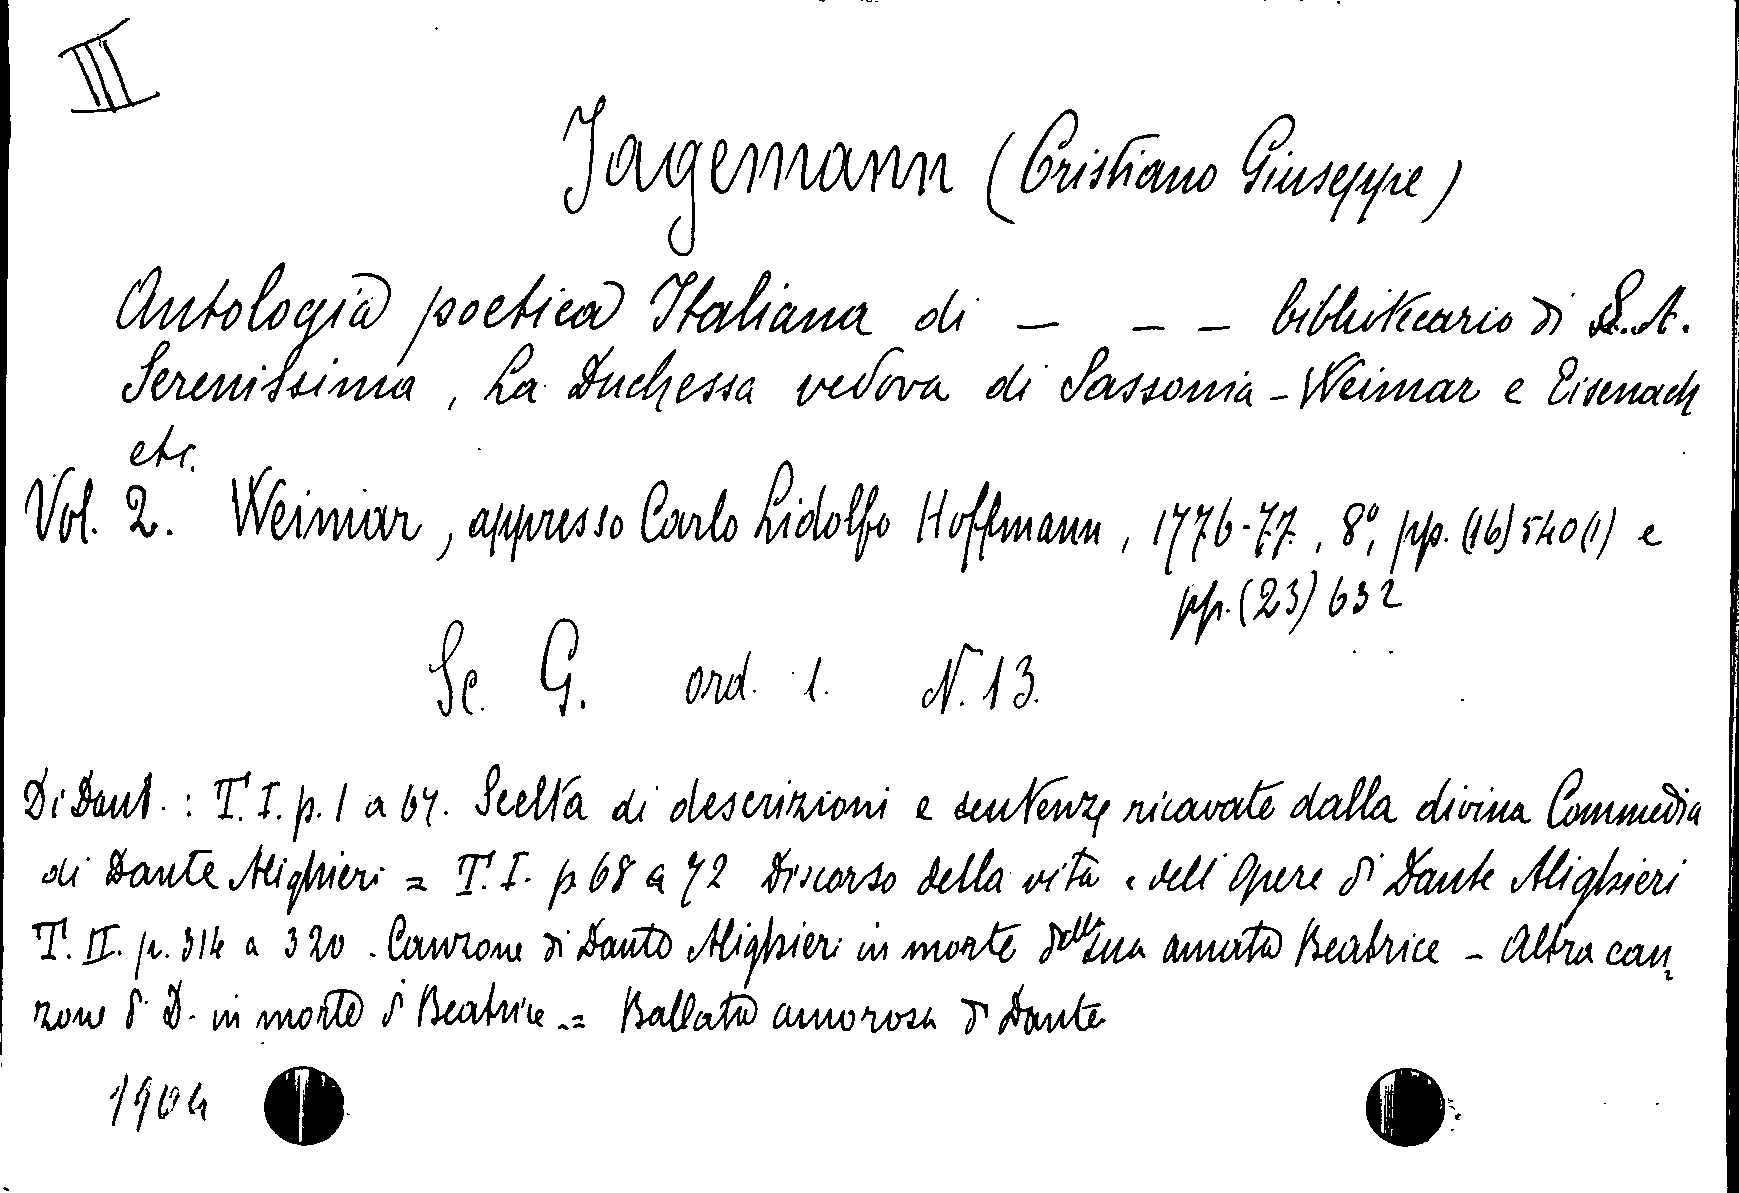 III
Jagemann (Cristiano Giuseppe)
Antologia poetica Italiana di — — — bibliotecario di S. A.
Serenissima, La Duchessa vedova di Sassonia-Weimar e Eisenach
etc.
Vol. 2. Weimar, appresso Carlo Lidolfo Hoffmann, 1776-77, 8°, pp. (16) 540 (1) e
pp. (23) 632
Sc. G. ord. 1. N. 13.
Di Dant.: T. I. p. 1 a 67. Scelta di descrizioni e sentenze ricavate dalla divina Commedia
di Dante Alighieri = T. I. p 68 a 72 Discorso della vita e dell' Opere di Dante Alighieri
T. II. p. 314 a 320. Canzone di Dante Alighieri in morte della sua amata Beatrice - Altra can=
zone di D. in morte di Beatrice - = Ballata amorosa di Dante
1904